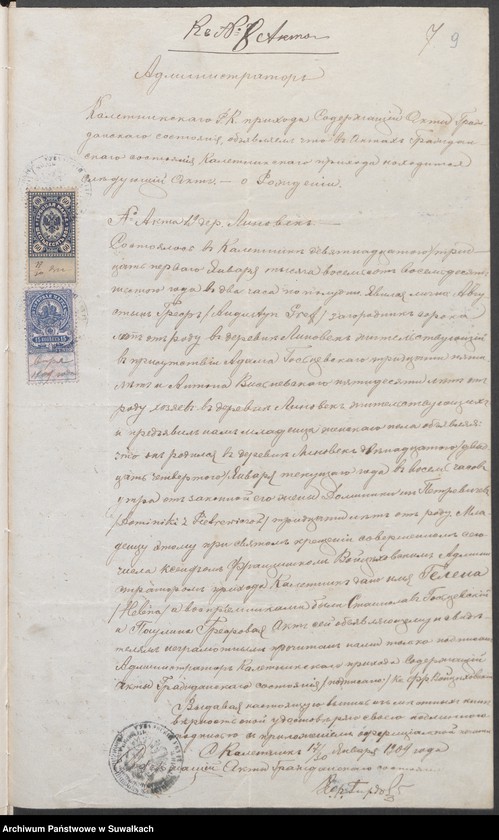 Къ № 8 Актовъ
7 9
Администраторъ
Калетникскаго Р.К. прихода Содержащій Акты Граж-
данскаго состоянія, объявляетъ что въ Актахъ Граждан-
скаго состоянія Калетникскаго прихода находится
слѣдующій Актъ — о Рожденіи.
№ Акта дер. Липовекъ —
Состоялось въ Калетникъ девятнадцатого/трид-
цать перваго Января тысяча восемьсотъ восемьдесятъ
года въ два часа по полудни. Явился лично Авгу-
стинъ Грефъ /Augustyn Gref/ загородникъ сорока
лѣтъ отъ роду въ деревнѣ Липовекъ жительствующій
въ присутствіи Адама тридцати пяти
лѣтъ и Антона Висневскаго пятидесяти лѣтъ отъ
роду хозяевъ въ деревнѣ Липовекъ жительствующихъ
и предъявилъ намъ младенца женскаго пола объявляя
что онъ родился въ деревнѣ Липовекъ двѣнадцатого/двад-
цать четвертого/Января текущаго года въ восемь часовъ
утра отъ законной его жены Доминики изъ Петровичей
/Dominiki z / тридцати лѣтъ отъ роду. Мла-
денцу этому при святомъ крещеніи совершенномъ сего
числа ксендзомъ Францишкомъ Админи-
страторомъ прихода Калетникъ дано имя Гелена
/Helena/ а воспріемниками были Станиславъ
и Паулина Грефовая Актъ сей объявляющему и свидѣ-
телямъ неграмотнымъ прочитанъ нами только подписанъ
Администраторъ Калетникскаго прихода Содержащій
Акты Гражданскаго состоянія /подписалъ/ Кс. Фр.
Выдавая настоящую выпись
вѣрность оной удостовѣряю своею подписью
съ приложеніемъ оффиціальной печати
Калетникъ 17/30 Января 1909 года
Акты Гражданскаго состоянія
Archiwum Państwowe w Suwałkach